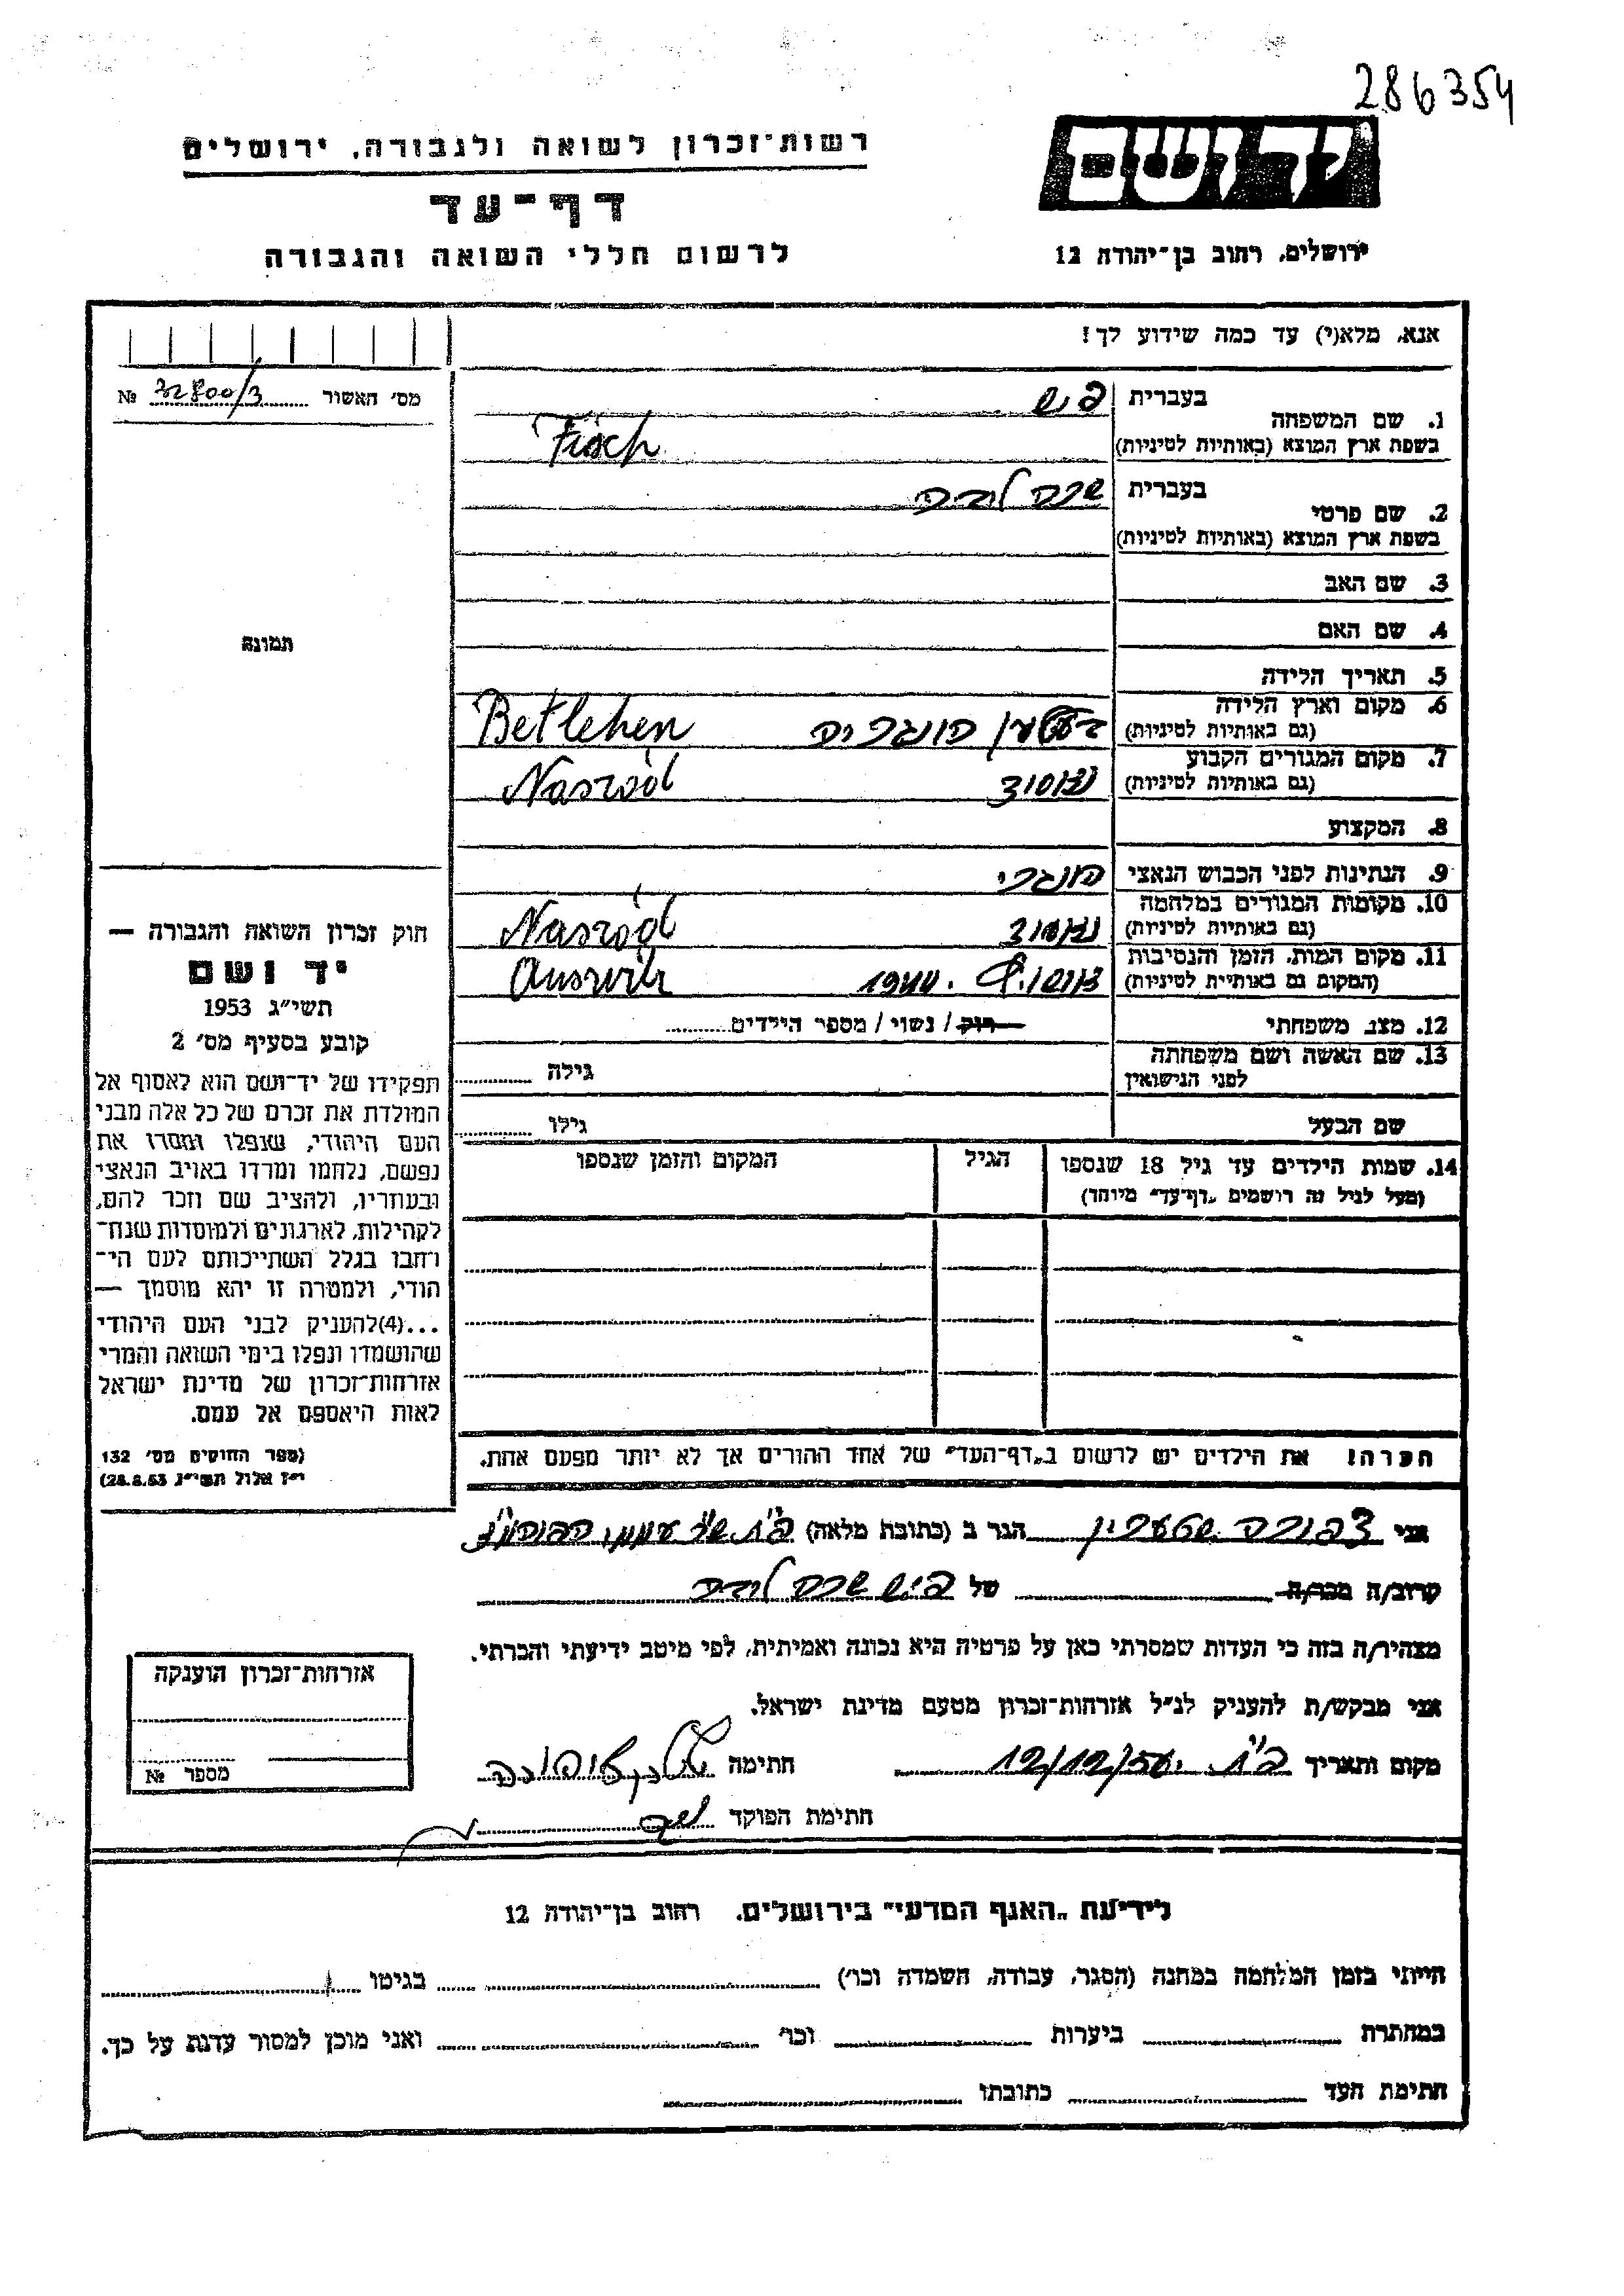 286354
יד ושם
רשות־זכרון לשואה ולגבורה, ירושלים
דף־עד
ירושלים, רחוב בן־יהודה 12
לרשום חללי השואה והגבורה
אנא, מלא(י) עד כמה שידוע לך!
מס׳ האשור № 32800/3
1. שם המשפחה בעברית פיש
בשפת ארץ המוצא (באותיות לטיניות) Fisch
2. שם פרטי בעברית שרה לובה
בשפת ארץ המוצא (באותיות לטיניות)
3. שם האב
4. שם האם
תמונה
5. תאריך הלידה
6. מקום וארץ הלידה
(גם באותיות לטיניות) הונגריה Betlehen
7. מקום המגורים הקבוע
(גם באותיות לטיניות) נאסוד Naszód
8. המקצוע
9. הנתינות לפני הכבוש הנאצי הונגרי
10. מקומות המגורים במלחמה
(גם באותיות לטיניות) נאסוד Naszód
11. מקום המות, הזמן והנסיבות
(המקום גם באותיית לטיניות) 1944
12. מצב משפחתי רווק / נשוי / מספר הילדים
13. שם האשה ושם משפחתה
לפני הנישואין גילה
שם הבעל גילו
14. שמות הילדים עד גיל 18 שנספו
(מעל לגיל זה רושמים „דף־עד״ מיוחד)
הגיל
המקום והזמן שנספו
חוק זכרון השואה והגבורה —
יד ושם
תשי״ג 1953
קובע בסעיף מס׳ 2
תפקידו של יד־ושם הוא לאסוף אל
המולדת את זכרם של כל אלה מבני
העם היהודי, שנפלו ומסרו את
נפשם, נלחמו ומרדו באויב הנאצי
ובעוזריו, ולהציב שם וזכר להם,
לקהילות, לארגונים ולמוסדות שנח־
רחבו בגלל השתייכותם לעם הי־
הודי, ולמטרה זו יהא מוסמך —
...(4)להעניק לבני העם היהודי
שהושמדו ונפלו בימי השואה והמרי
אזרחות־זכרון של מדינת ישראל
לאות היאספם אל עמם.
(ספר החוקים מס׳ 132
י״ז אלול תשי״ג 28.8.53)
הערה! את הילדים יש לרשום ב„דף־העד״ של אחד ההורים אך לא יותר מפעם אחת.
אני צפורה שטערן הגר ב (כתובת מלאה) פ״ת
קרוב/ה מכר/ה של פיש שרה לובה
מצהיר/ה בזה כי העדות שמסרתי כאן על פרטיה היא נכונה ואמיתית, לפי מיטב ידיעתי והכרתי.
אני מבקש/ת להעניק לנ״ל אזרחות־זכרון מטעם מדינת ישראל.
מקום ותאריך פ״ת 12/12/56 חתימה
חתימת הפוקד
אזרחות־זכרון הוענקה
מספר №
לידיעת „האגף המדעי״ בירושלים, רחוב בן־יהודה 12
הייתי בזמן המלחמה במחנה (הסגר, עבודה, השמדה וכו׳) בגיטו
במחתרת ביערות וכו׳ ואני מוכן למסור עדות על כך.
חתימת העד כתובתו